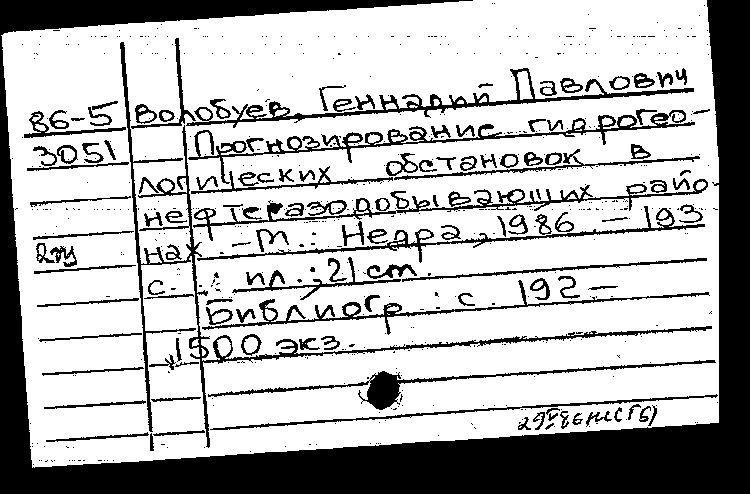 86-5 Воробуев, Геннадий Павлович
3051 Прогнозирование гидрогео-
логических обстановок в
нефтегазодобывающих райо-
нах. - М.: Недра, 1986. - 193
с. : ил.; 21 cm.
Библиогр.: с. 192-
1500 экз.